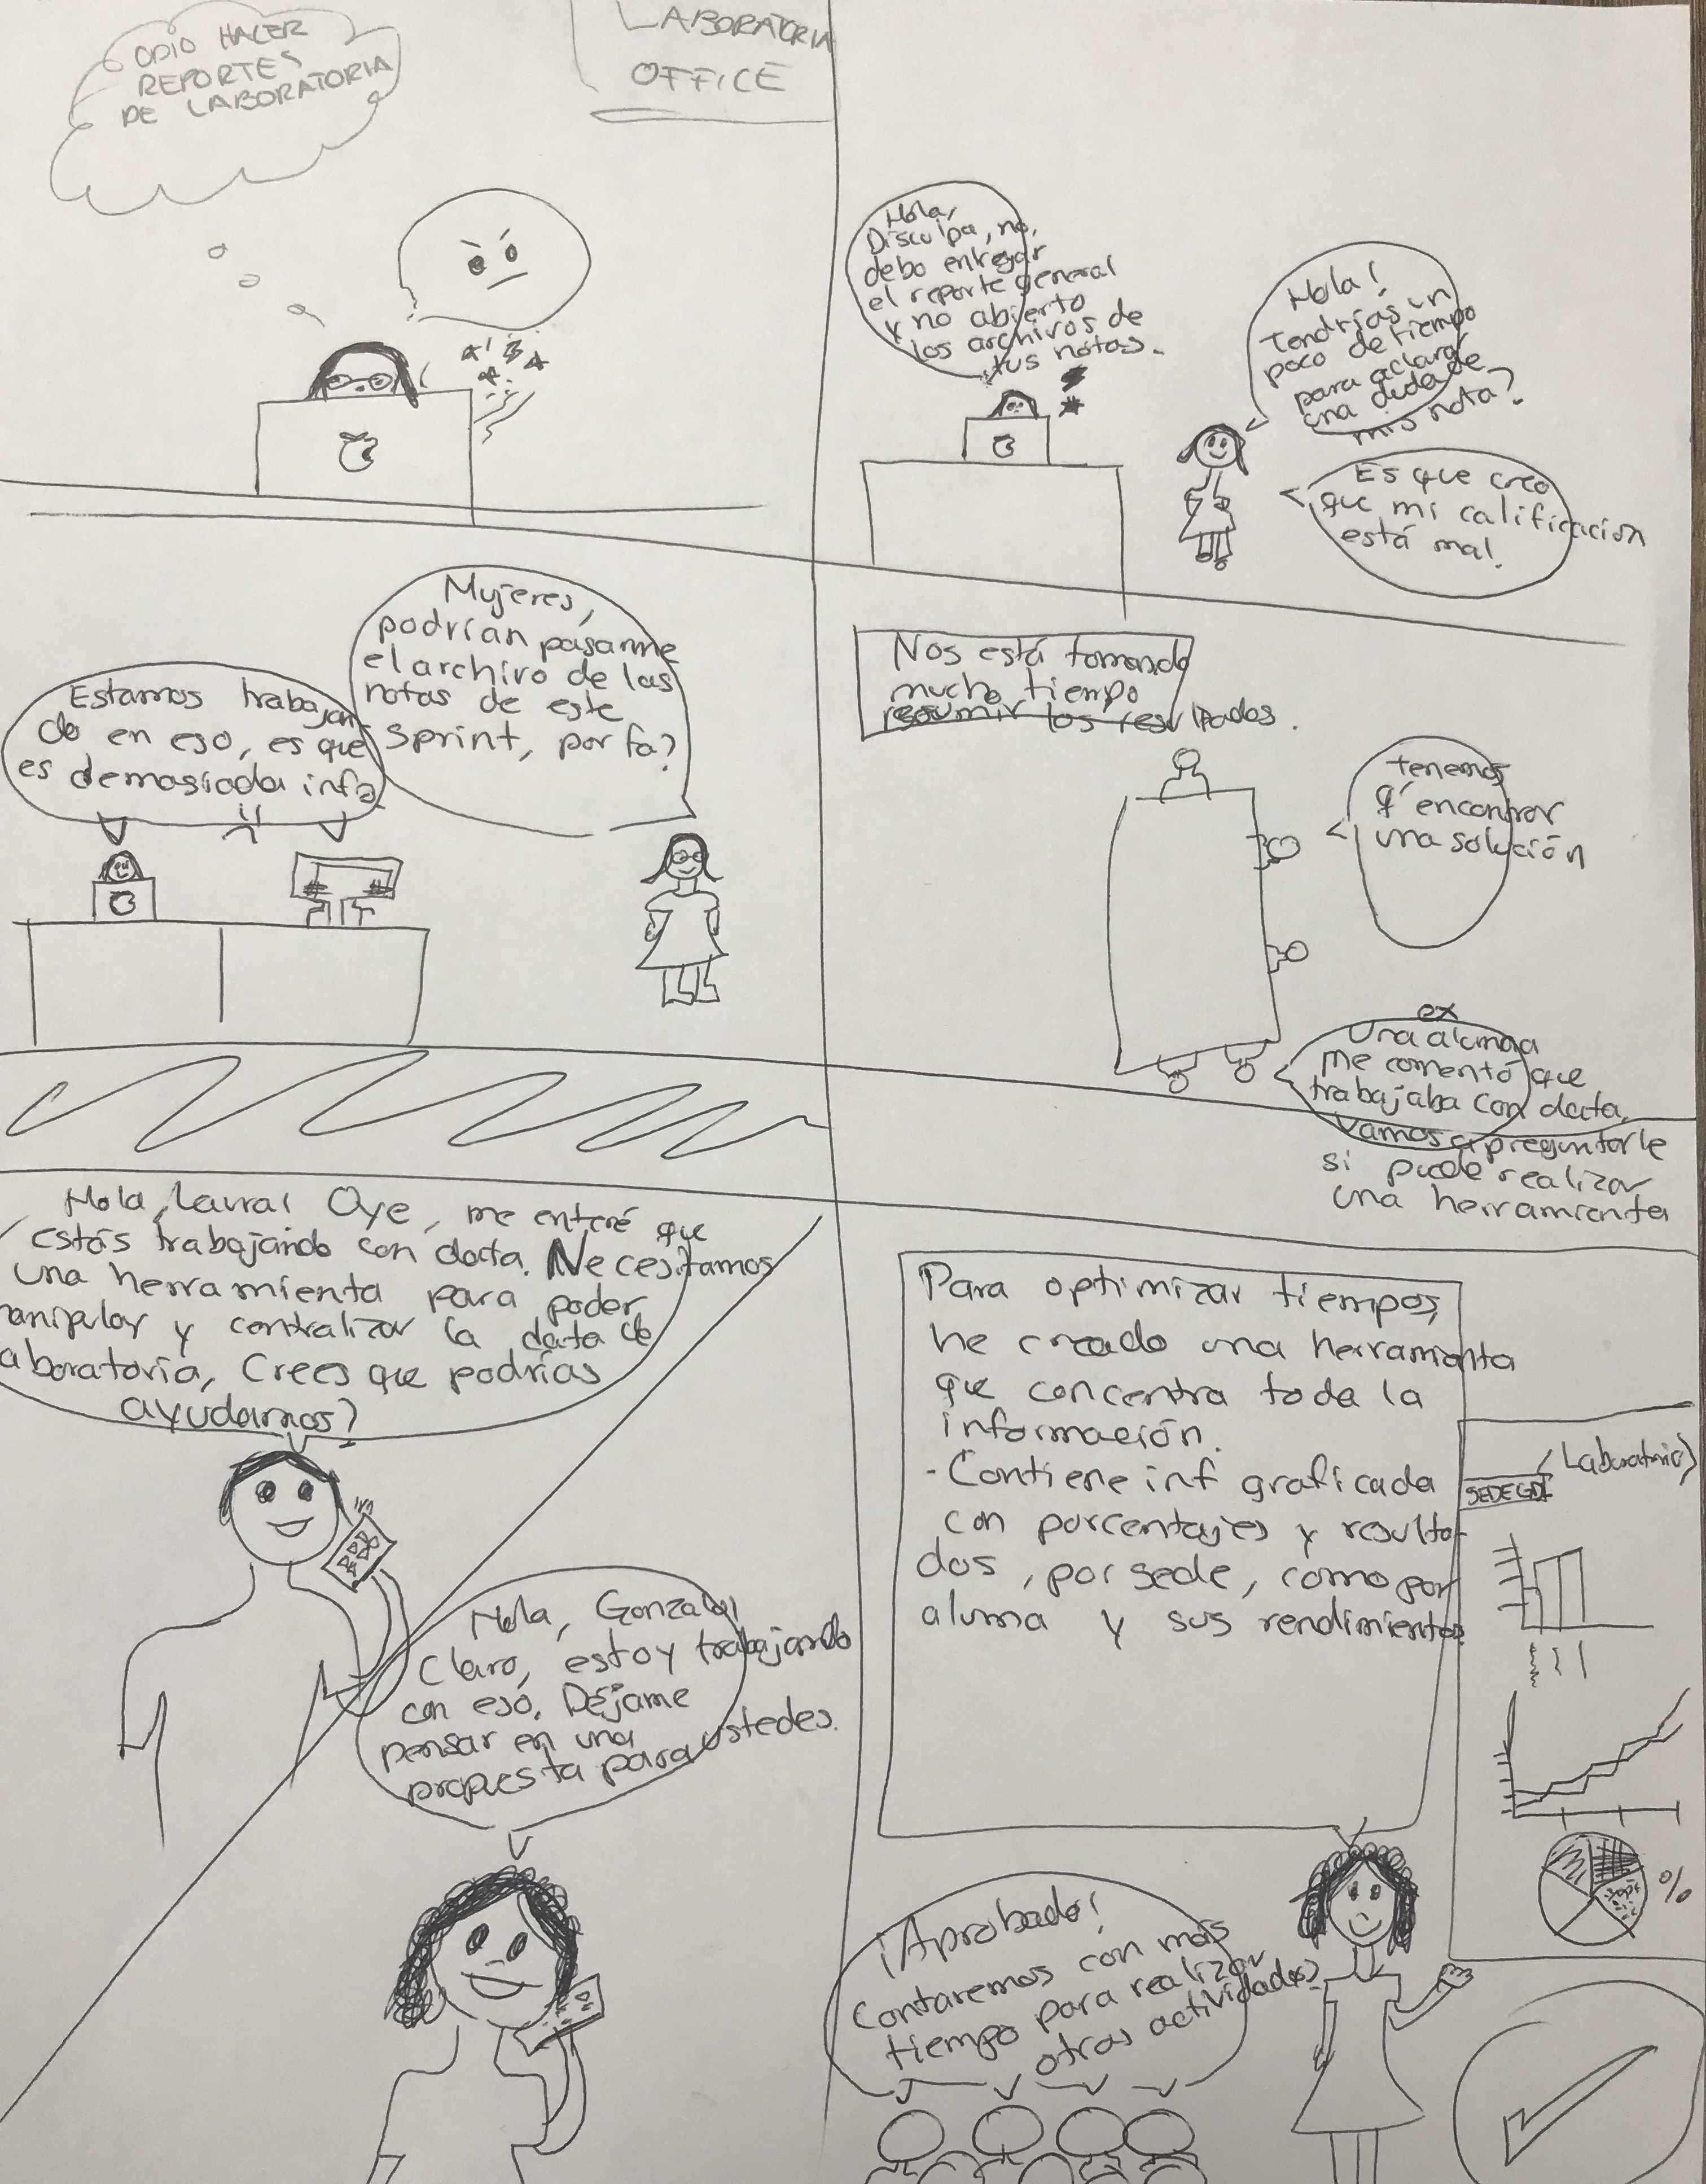 ODIO HACER
REPORTES
DE LABORATORIA
LABORATORIA
OFFICE
Hola,
Disculpa, no,
debo entregar
el reporte general
y no abierto
los archivos de
tus notas.
Hola!
Tendrías un
poco de tiempo
para aclarar
una duda de
mis nota?
Es que creo
que mi calificación
está mal.
Mujeres,
podrían pasarme
el archivo de las
notas de este
Sprint, por fa?
Estamos trabajan
do en eso, es que
es demasiada info
Nos está tomando
mucho tiempo
resumir los resultados.
tenemos
q' encontrar
una solución
ex
Una alumna
me comentó que
trabajaba con data,
vamos a preguntarle
si puede realizar
una herramienta
Hola, Laura! Oye, me enteré que
estás trabajando con data. Necesitamos
una herramienta para poder
manipular y centralizar la data de
aboratoria, Crees que podrías
ayudarnos?
Hola, Gonzalo!
Claro, estoy trabajando
con eso. Déjame
pensar en una
propuesta para ustedes.
Para optimizar tiempos,
he creado una herramienta
que concentra toda la
información.
- Contiene inf graficada
con porcentajes y resulta-
dos, por sede, como por
aluma y sus rendimientos
Laboratoria
SEDE GDL
%
¡Aprobado!
Contaremos con más
tiempo para realizar
otras actividades